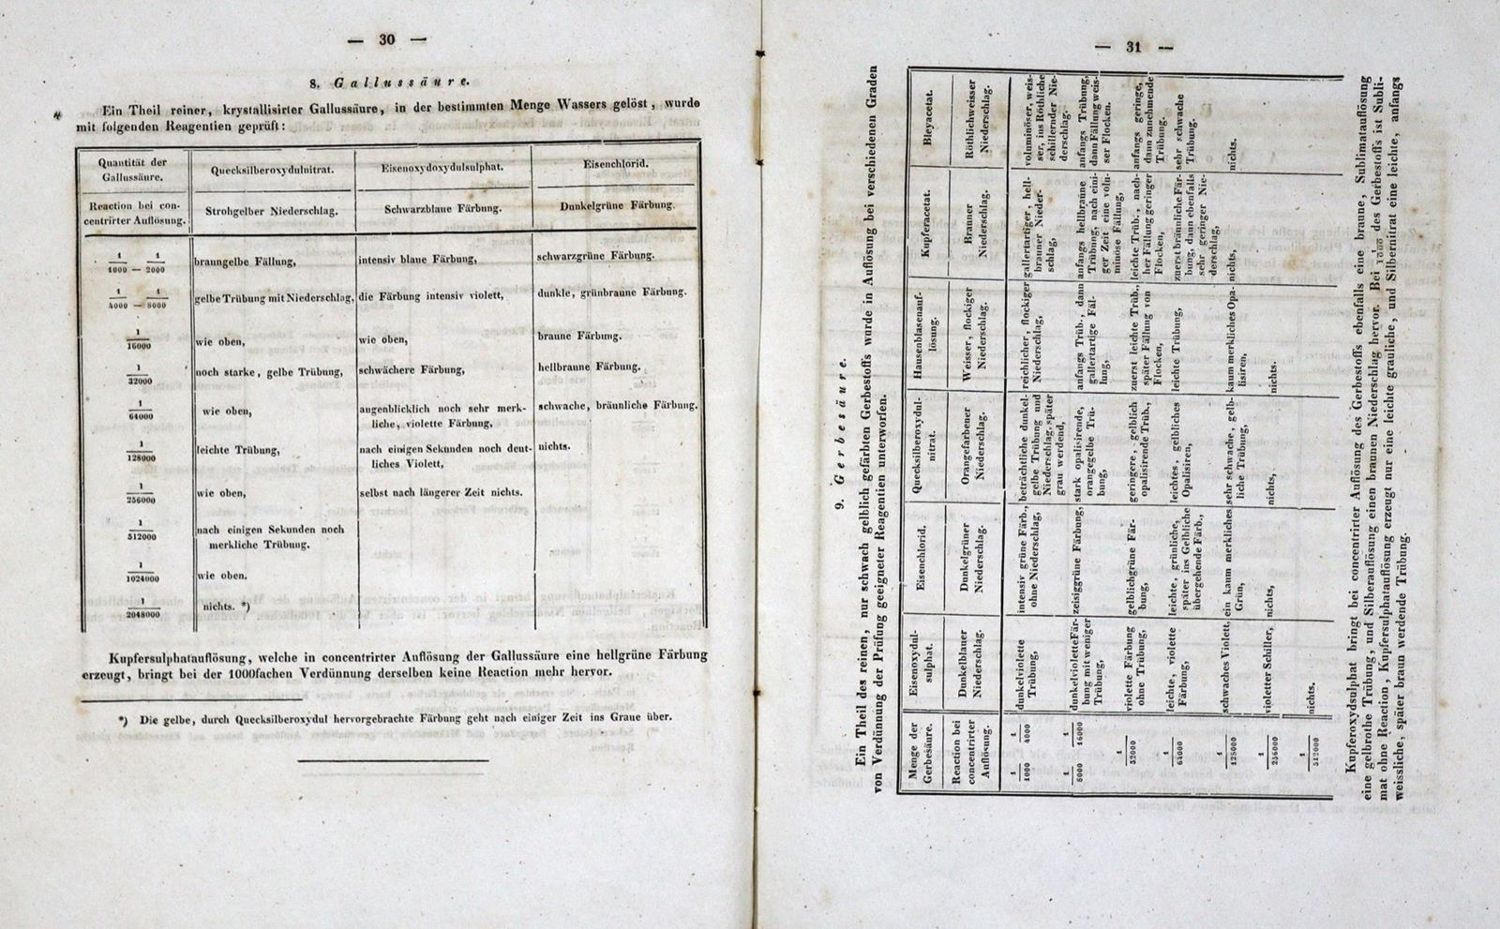 — 30 —
8. Gallussäure.
Ein Theil reiner, krystallisirter Gallussäure, in der bestimmten Menge Wassers gelöst, wurde
mit folgenden Reagentien geprüft:
Quantität der Gallussäure. Quecksilberoxydulnitrat. Eisenoxydoxydulsulphat. Eisenchlorid.
Reaction bei con-
centrirter Auflösung. Strohgelber Niederschlag. Schwarzblaue Färbung. Dunkelgrüne Färbung.
1/1000 — 1/2000 braungelbe Fällung, intensiv blaue Färbung, schwarzgrüne Färbung.
1/4000 — 1/8000 gelbe Trübung mit Niederschlag, die Färbung intensiv violett, dunkle, grünbraune Färbung.
1/16000 wie oben, wie oben, braune Färbung.
1/32000 noch starke, gelbe Trübung, schwächere Färbung, hellbraune Färbung.
1/64000 wie oben, augenblicklich noch sehr merk- schwache, bräunliche Färbung.
liche, violette Färbung,
1/128000 leichte Trübung, nach einigen Sekunden noch deut- nichts.
liches Violett,
1/256000 wie oben, selbst nach längerer Zeit nichts.
1/512000 nach einigen Sekunden noch
merkliche Trübung.
1/1024000 wie oben.
1/2048000 nichts. *)
Kupfersulphatauflösung, welche in concentrirter Auflösung der Gallussäure eine hellgrüne Färbung
erzeugt, bringt bei der 1000fachen Verdünnung derselben keine Reaction mehr hervor.
*) Die gelbe, durch Quecksilberoxydul hervorgebrachte Färbung geht nach einiger Zeit ins Graue über.
— 31 —
9. Gerbesäure.
Ein Theil des reinen, nur schwach gelblich gefärbten Gerbestoffs wurde in Auflösung bei verschiedenen Graden
von Verdünnung der Prüfung geeigneter Reagentien unterworfen.
Menge der
Gerbesäure.
Reaction bei
concentrirter
Auflösung.
1/1000 1/4000
1/8000 1/16000
1/32000
1/64000
1/128000
1/256000
1/512000
Eisenoxydul-
sulphat.
Dunkelblauer
Niederschlag.
dunkelviolette
Trübung,
dunkelviolette Fär-
bung mit weniger
Trübung,
violette Färbung
ohne Trübung,
leichte, violette
Färbung,
schwaches Violett,
violetter Schiller,
nichts.
Eisenchlorid.
Dunkelgrüner
Niederschlag.
intensiv grüne Färb.,
ohne Niederschlag,
zeisiggrüne Färbung,
gelblichgrüne Fär-
bung,
leichte, grünliche,
später ins Gelbliche
übergehende Färb.,
ein kaum merkliches
Grün,
nichts,
Quecksilberoxydul-
nitrat.
Orangefarbener
Niederschlag.
beträchtliche dunkel-
gelbe Trübung und
Niederschlag, später
grau werdend,
stark opalisirende,
orangegelbe Trü-
bung,
geringere, gelblich
opalisirende Trüb.,
leichtes, gelbliches
Opalisiren,
sehr schwache, gelb-
liche Trübung,
nichts,
Hausenblasenauf-
lösung.
Weisser, flockiger
Niederschlag.
reichlicher, flockiger
Niederschlag,
anfangs Trüb., dann
gallertartige Fäl-
lung,
zuerst leichte Trüb.,
später Fällung von
Flocken,
leichte Trübung,
kaum merkliches Opa-
lisiren,
nichts.
Kupferacetat.
Brauner
Niederschlag.
gallertartiger, hell-
brauner Nieder-
schlag,
anfangs hellbraune
Trübung, nach eini-
ger Zeit eine volu-
minöse Fällung,
leichte Trüb., nach-
her Fällung geringer
Flocken,
zuerst bräunliche Fär-
bung, dann ebenfalls
sehr geringer Nie-
derschlag,
nichts,
Bleyacetat.
Röthlichweisser
Niederschlag.
voluminöser, weis-
ser, ins Röthliche
schillernder Nie-
derschlag.
anfangs Trübung,
dann Fällung weis-
ser Flocken.
anfangs geringe,
dann zunehmende
Trübung.
sehr schwache
Trübung.
nichts.
Kupferoxydsulphat bringt bei concentrirter Auflösung des Gerbestoffs ebenfalls eine braune, Sublimatauflösung
eine gelbrothe Trübung, und Silberauflösung einen braunen Niederschlag hervor. Bei 1/1000 des Gerbestoffs ist Subli-
mat ohne Reaction, Kupfersulphatauflösung erzeugt nur eine leichte grauliche, und Silbernitrat eine leichte, anfangs
weissliche, später braun werdende Trübung.